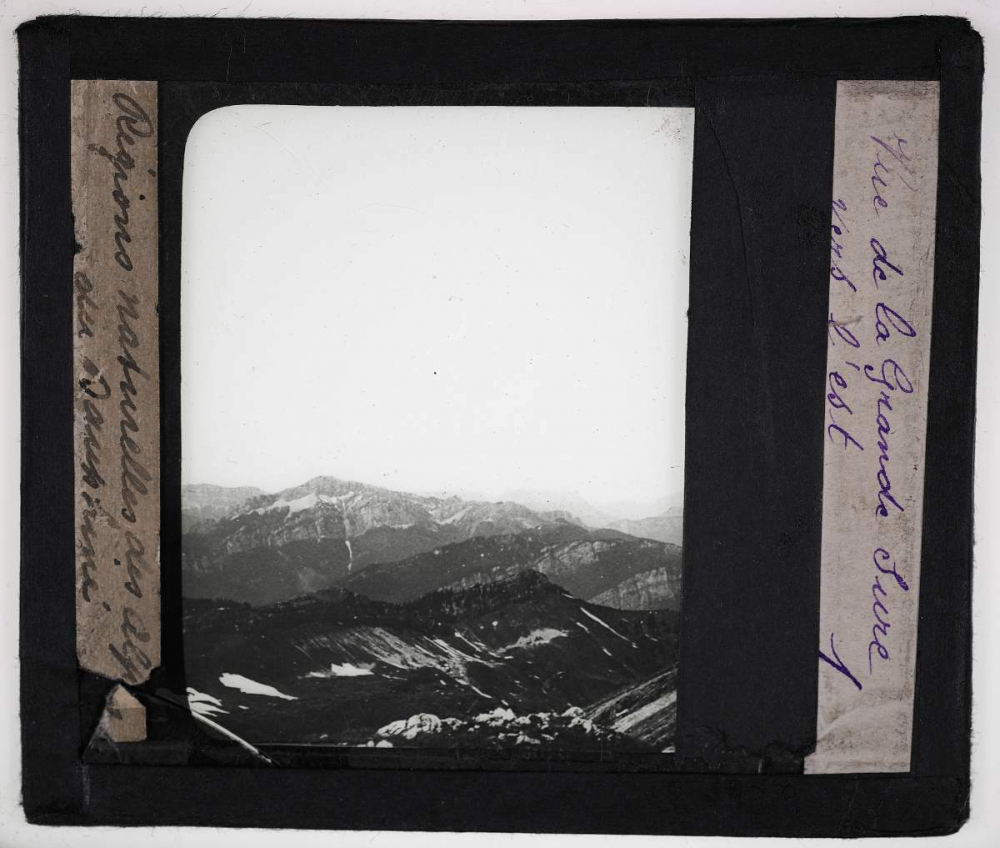 Régions naturelles des Alp
du Dauphiné
Vue de la Grande Sure
vers l'est